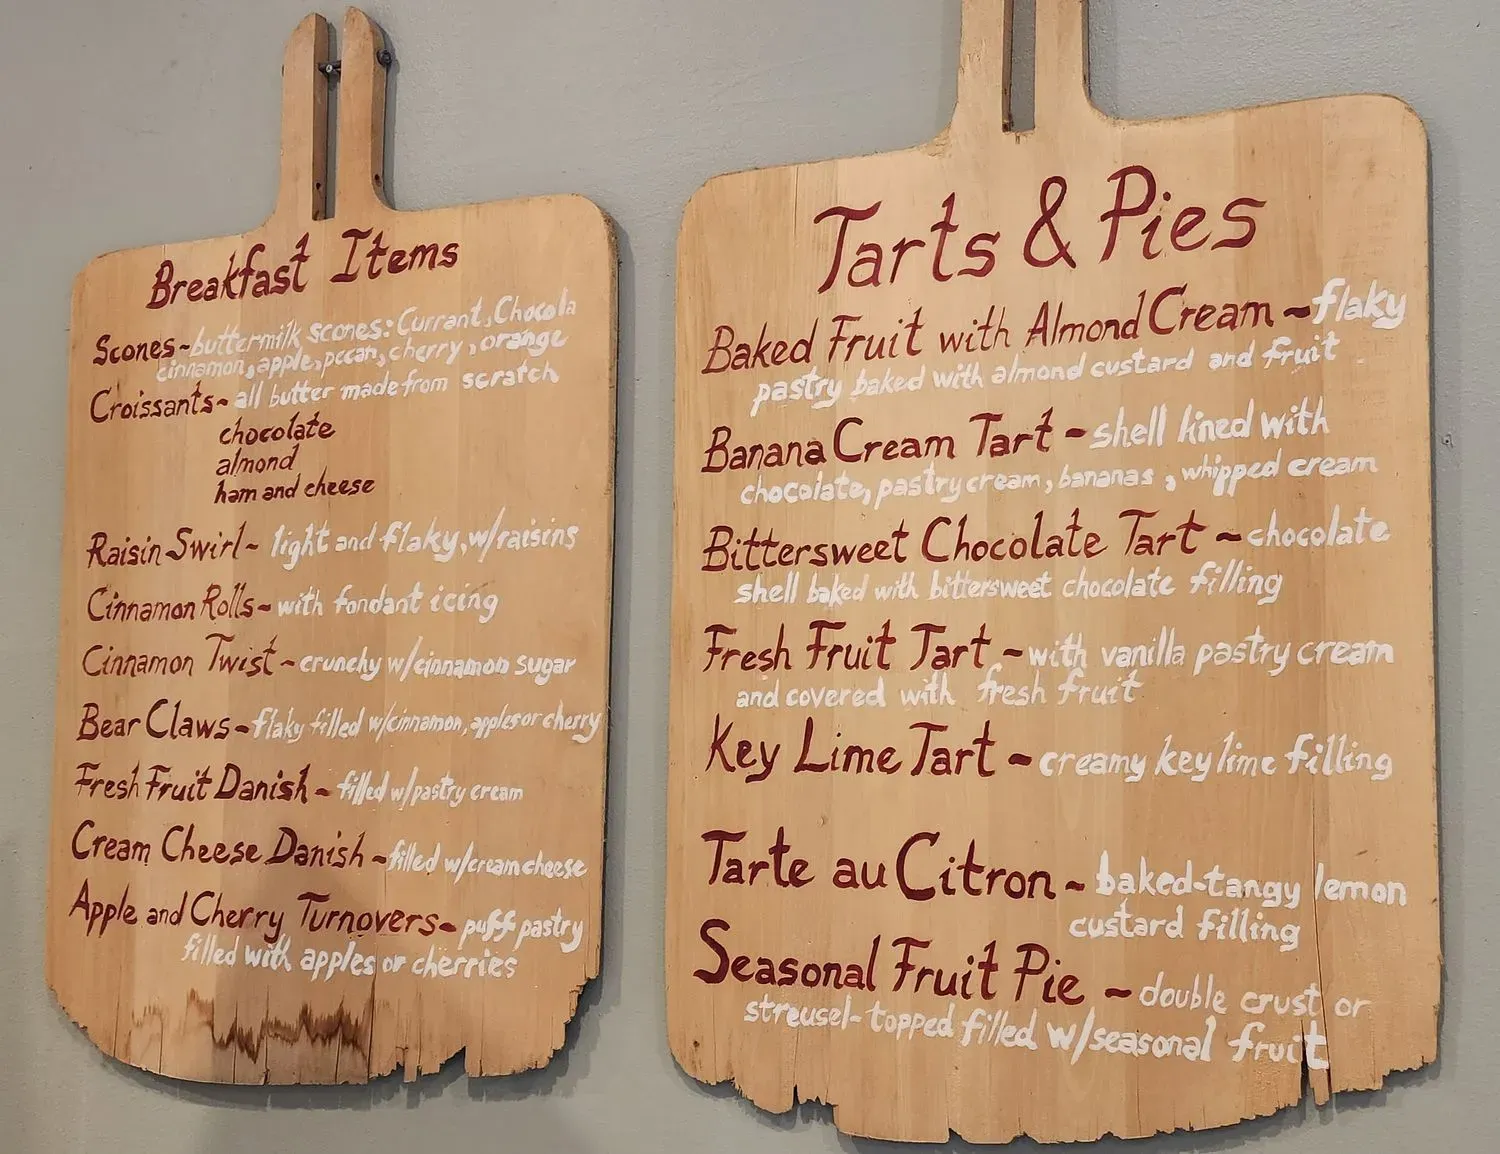 Breakfast Items
Scones~buttermilk scones: Currant, Chocola
cinnamon, apple, pecan, cherry, orange
Croissants~all butter made from scratch
chocolate
almond
ham and cheese
Raisin Swirl~ light and flaky, w/raisins
Cinnamon Rolls~with fondant icing
Cinnamon Twist~crunchy w/cinnamon sugar
Bear Claws~flaky filled w/cinnamon, apples or cherry
Fresh Fruit Danish~filled w/pastry cream
Cream Cheese Danish~filled w/cream cheese
Apple and Cherry Turnovers~puff pastry
filled with apples or cherries
Tarts & Pies
Baked Fruit with Almond Cream~flaky
pastry baked with almond custard and fruit
Banana Cream Tart~shell lined with
chocolate, pastry cream, bananas, whipped cream
Bittersweet Chocolate Tart~chocolate
shell baked with bittersweet chocolate filling
Fresh Fruit Tart~with vanilla pastry cream
and covered with fresh fruit
Key Lime Tart~creamy key lime filling
Tarte au Citron~baked-tangy lemon
custard filling
Seasonal Fruit Pie~double crust or
streusel-topped filled w/seasonal fruit